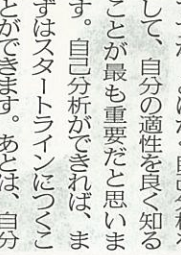 自己分析を
して、自分の適性を良く知る
ことが最も重要だと思いま
す。自己分析ができれば、ま
ずはスタートラインにつくこ
とができます。あとは、自分